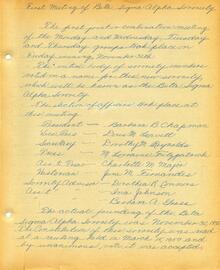 First Meeting of Beta Sigma Alpha Sorority
The first post-combination meeting
of the Monday and Wednesday, Tuesday
and Thursday groups took place on
Friday evening, November 30th.
The united body of sorority members
voted on a name for this new sorority,
which will be known as the Beta Sigma
Alpha Sorority.
The election of officers took place at
this meeting.
President - Barbara B. Chapman
Vice Pres. - Doris M. Lovett
Secretary - Dorothy M. Reynolds
Treas. - M. Lorraine Fitzpatrick
Ass't Treas. - Charlotte M. Major
Historian - June M. Fernandes
Sorority Advisor - Dorothea R. Downs
Ina Johnson
Barbara A.
The actual founding of the Beta
Sigma Alpha Sorority was November 30,
The Constitution of this sorority was read
at a meeting held on March
and by unanimous vote it was accepted.